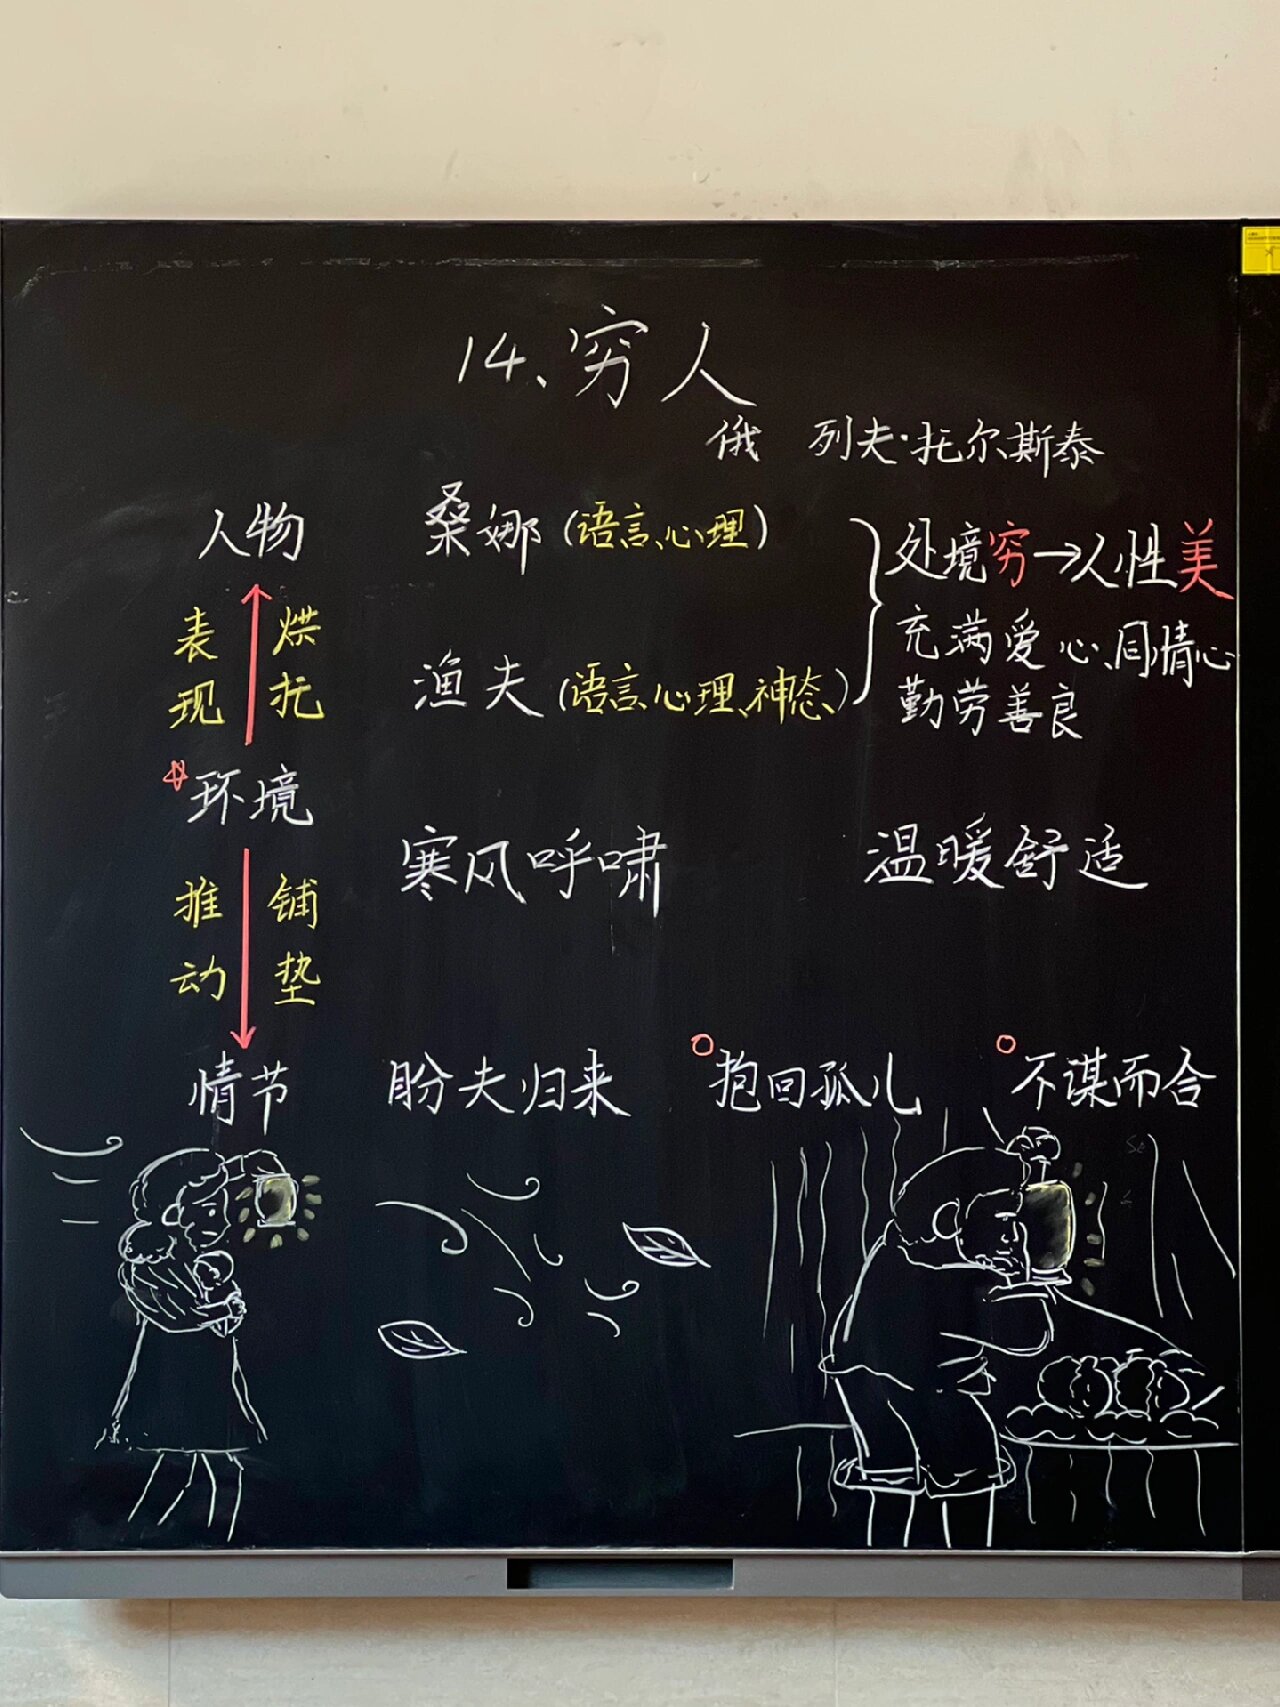 14、穷人
俄 列夫·托尔斯泰
人物 桑娜(语言、心理) 处境穷→人性美
表现 烘托 充满爱心、同情心
渔夫(语言、心理、神态) 勤劳善良
环境 寒风呼啸 温暖舒适
推动 铺垫
情节 盼夫归来 抱回孤儿 不谋而合